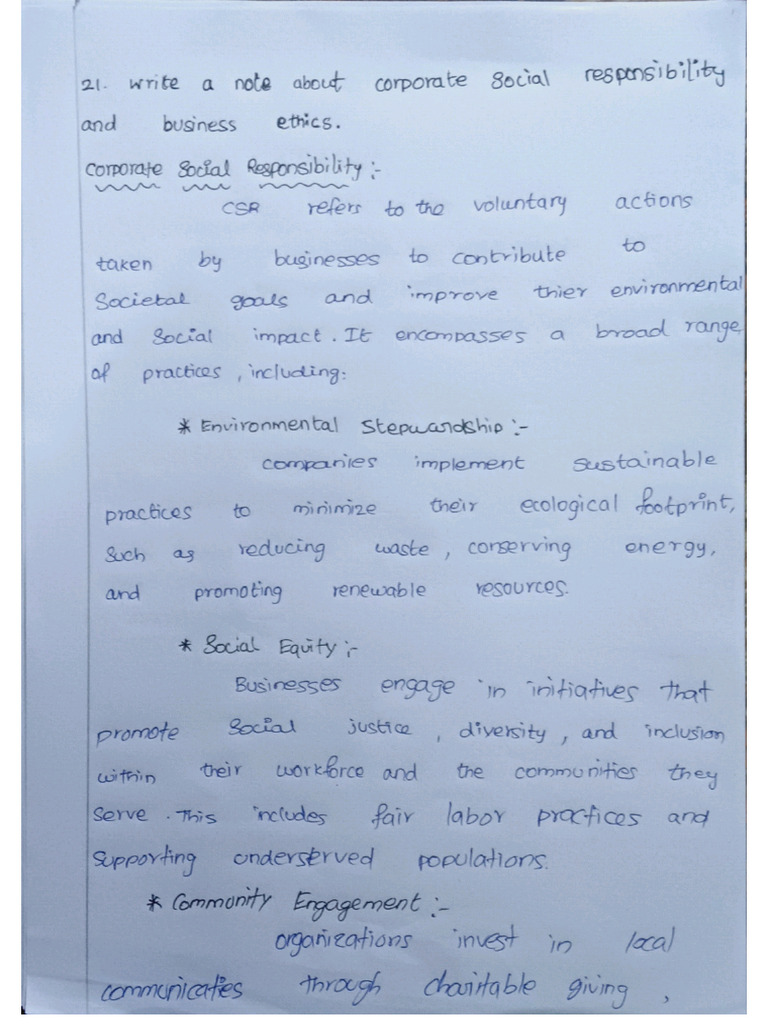 21. Write a note about corporate social responsibility
and business ethics.
Corporate Social Responsibility :-
CSR refers to the voluntary actions
taken by businesses to contribute to
Societal goals and improve thier environmental
and social impact. It encompasses a broad range
of practices, including:
* Environmental Stepwandship :-
companies implement sustainable
practices to minimize their ecological footprint,
such as reducing waste, conserving energy,
and promoting renewable resources.
* Social Equity :-
Businesses engage in initiatives that
promote social justice, diversity, and inclusion
within their workforce and the communities they
serve. This includes fair labor practices and
supporting underserved populations.
* Community Engagement :-
organizations invest in local
communicaties through charitable giving,